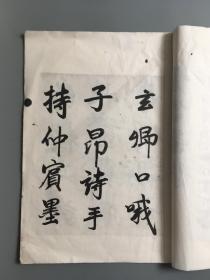 玄卿口哦
子昂诗手
持仲賓墨